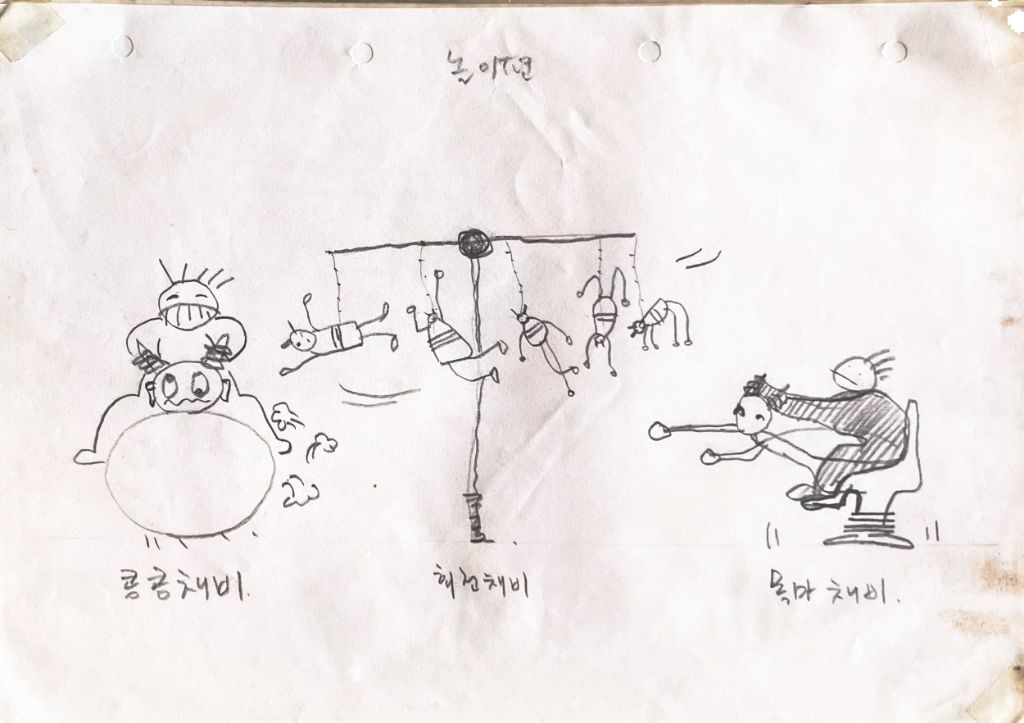 놀이터편
콩콩채비.
회전채비
목마 채비.